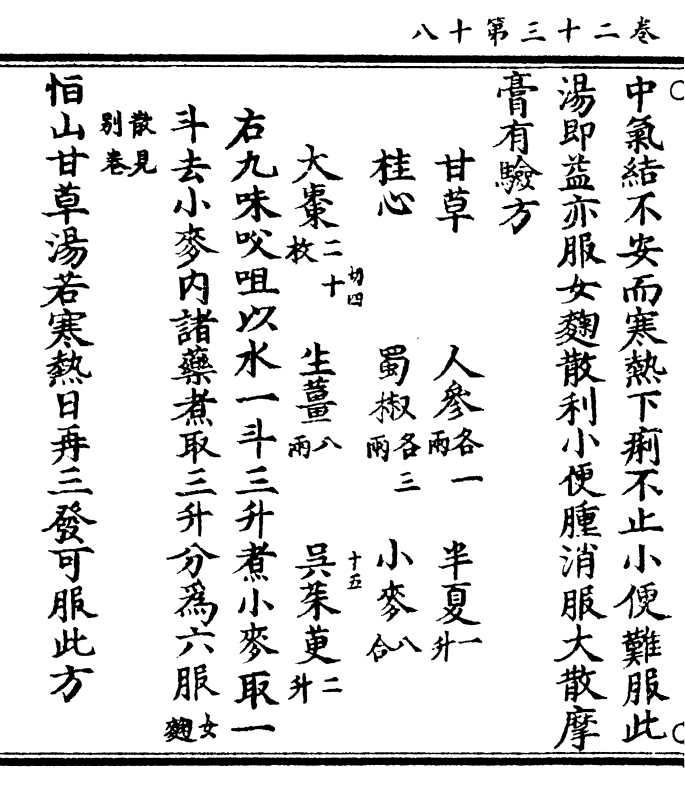 卷二十三第十八
中氣結不安而寒熱下痢不止小便難服此
湯即益亦服女麴散利小便腫消服大散摩
膏有驗方
甘草 人參各一兩 半夏一升
桂心 蜀椒各三兩 小麥八合
切四 十五
大棗二十枚 生薑八兩 吳茱萸二升
右九味㕮咀以水一斗三升煮小麥取一
斗去小麥內諸藥煮取三升分爲六服女麴
散見別卷
恒山甘草湯若寒熱日再三發可服此方